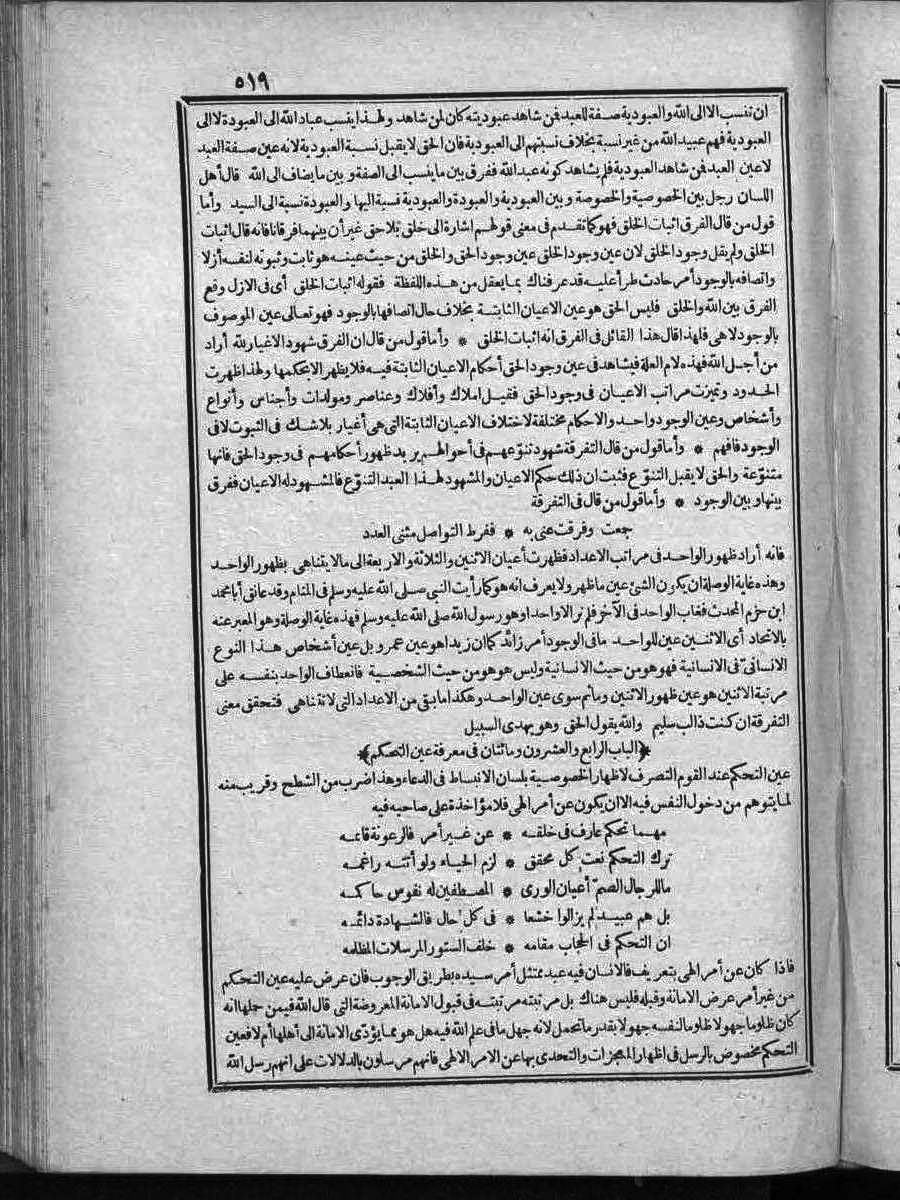 ٥١٩
ان تنسب الا الى الله والعبودية صفة للعبد فمن شاهد عبوديته كان لمن شاهد ولهذا ينسب عباد الله الى العبودة لا الى
العبودية فهم عبيد الله من غير نسبة بخلاف نسبتهم الى العبودية فان الحق لا يقبل نسبة العبودية لانه عين صفة العبد
لا عين العبد فمن شاهد العبودية فلم يشاهد كونه عبد الله ففرق بين ما ينسب الى الصفة وبين ما يضاف الى الله قال أهل
اللسان رجل بين الخصوصية والخصوصة وبين العبودية والعبودة والعبودية نسبة اليها والعبودة نسبة الى السيد وأما
قول من قال الفرق اثبات الخلق فهو كما تقدم فى معنى قولهم اشارة الى خلق بلا حق غير أن بينهما فرقانا فانه قال اثبات
الخلق ولم يقل وجود الخلق لان عين وجود الخلق عين وجود الحق والخلق من حيث عينه هو ثابت وثبوته لنفسه أزلا
واتصافه بالوجود أمر حادث طرأ عليه قد عرفناك بما يعقل من هذه اللفظة فقوله اثبات الخلق أى فى الازل وقع
الفرق بين الله والخلق فليس الحق هو عين الاعيان الثابتة بخلاف حال اتصافها بالوجود فهو تعالى عين الموصوف
بالوجود لا هى فلهذا قال هذا القائل فى الفرق انه اثبات الخلق * وأما قول من قال ان الفرق شهود الاغيار لله أراد
من أجل الله فهذه لام العلة فيشاهد فى عين وجود الحق أحكام الاعيان الثابتة فيه فلا يظهر الا بحكمها ولهذا ظهرت
الحدود وتميزت مراتب الاعيان فى وجود الحق فقيل املاك وأفلاك وعناصر ومولدات وأجناس وأنواع
وأشخاص وعين الوجود واحد والاحكام مختلفة لاختلاف الاعيان الثابتة التى هى أغيار بلا شك فى الثبوت لا فى
الوجود فافهم * وأما قول من قال التفرقة شهود تنوّعهم فى أحوالهم يريد ظهور أحكامهم فى وجود الحق فانها
متنوّعة والحق لا يقبل التنوّع فثبت ان ذلك حكم الاعيان والمشهود لهذا العبد التنوّع فالمشهود له الاعيان ففرق
بينها وبين الوجود * وأما قول من قال فى التفرقة
جمعت وفرقت عنى به * ففرط التواصل مثنى العدد
فانه أراد ظهور الواحد فى مراتب الاعداد فظهرت أعيان الاثنين والثلاثة والاربعة الى ما لا يتناهى بظهور الواحد
وهذه غاية الوصلة ان يكون الشئ عين ما ظهر ولا يعرف انه هو كما رأيت النبى صلى الله عليه وسلم فى المنام وقد عانق أبا محمد
ابن حزم المحدث فغاب الواحد فى الآخر فلم نر الا واحدا وهو رسول الله صلى الله عليه وسلم فهذه غاية الوصلة وهو المعبر عنه
بالاتحاد أى الاثنين عين للواحد ما فى الوجود أمر زائد كما ان زيدا هو عين عمرو بل عين أشخاص هذا النوع
الانسانى فى الانسانية فهو هو من حيث الانسانية وليس هو هو من حيث الشخصية فانعطاف الواحد بنفسه على
مرتبة الاثنين هو عين ظهور الاثنين وما ثم سوى عين الواحد وهكذا ما بقى من الاعداد التى لا تتناهى فتحقق معنى
التفرقة ان كنت ذا لب سليم والله يقول الحق وهو يهدى السبيل
﴿الباب الرابع والعشرون ومائتان فى معرفة عين التحكم﴾
عين التحكم عند القوم التصرف لاظهار الخصوصية بلسان الانبساط فى الدعاء وهذا ضرب من الشطح وقريب منه
لما يتوهم من دخول النفس فيه الا ان يكون عن أمر الهى فلا مؤاخذة على صاحبه فيه
مهما تحكم عارف فى خلقه * عن غير أمر فالرعونة قائمه
ترك التحكم نعت كل محقق * لزم الحياء ولو أتته راغمه
ما للرجال الصمّ أعيان الورى * المصطفين له نفوس حاكمه
بل هم عبيد لم يزالوا خشعا * فى كل حال فالشهادة دائمه
ان التحكم فى الحجاب مقامه * خلف الستور المرسلات المظلمه
فاذا كان عن أمر الهى بتعريف فالانسان فيه عبد ممتثل أمر سيده بطريق الوجوب فان عرض عليه عين التحكم
من غير أمر عرض الامانة وقبله فليس هناك بل مرتبته مرتبته فى قبول الامانة المعروضة التى قال الله فيمن حملها انه
كان ظلوما جهولا ظلوما لنفسه جهولا بقدر ما تحمل لانه جهل ما فى علم الله فيه هل هو مما يؤدّى الامانة الى أهلها أم لا فعين
التحكم مخصوص بالرسل فى اظهار المعجزات والتحدى بها عن الامر الالهى فانهم مرسلون بالدلالات على انهم رسل الله